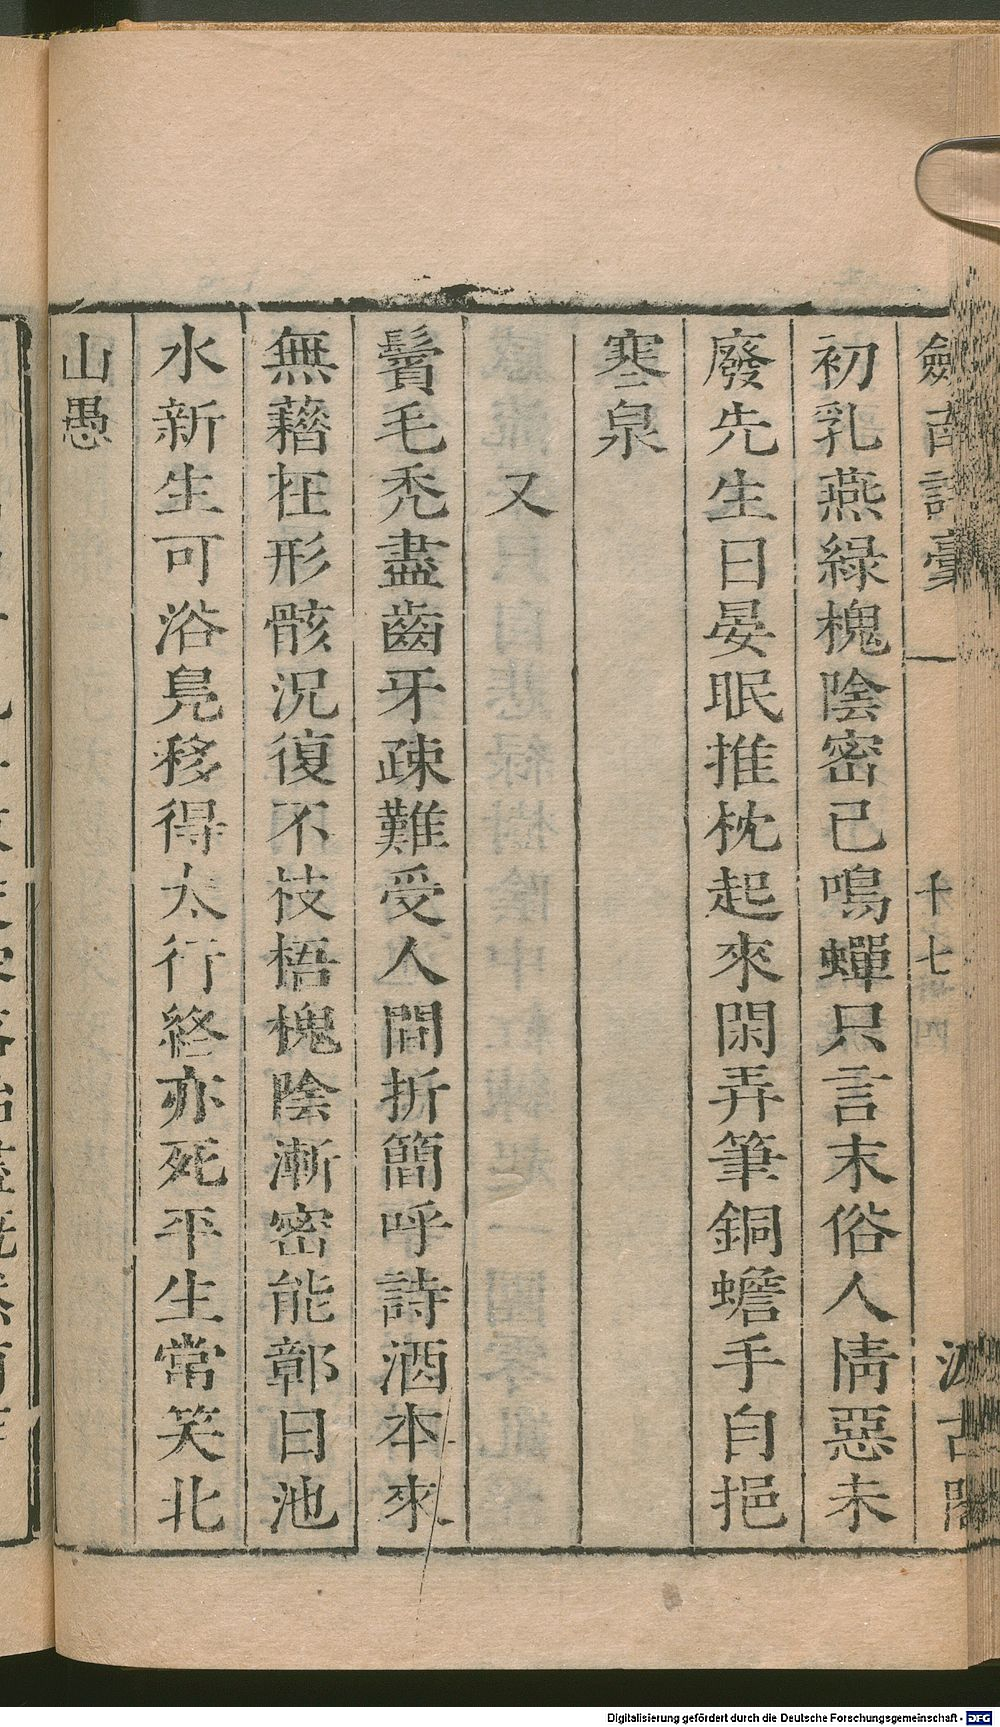 劒南詩稾 十七 汲古閣
初乳燕綠槐陰密已鳴蟬只言末俗人情惡未
廢先生日晏眠推枕起來閑弄筆銅蟾手自挹
寒泉
又
鬢毛禿盡齒牙疎難受人間折簡呼詩酒本來
無藉在形骸況復不枝梧槐陰漸密能鄣日池
水新生可浴鳧移得太行終亦死平生常笑北
山愚
Digitalisierung gefördert durch die Deutsche Forschungsgemeinschaft - DFG